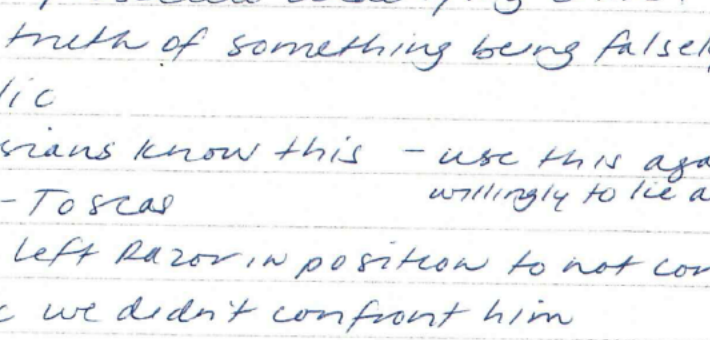 truth of something being falsely
lic
sians know this - use this aga
willingly to lie a
- Toscas
left Razor in position to not con
c we didn't confront him